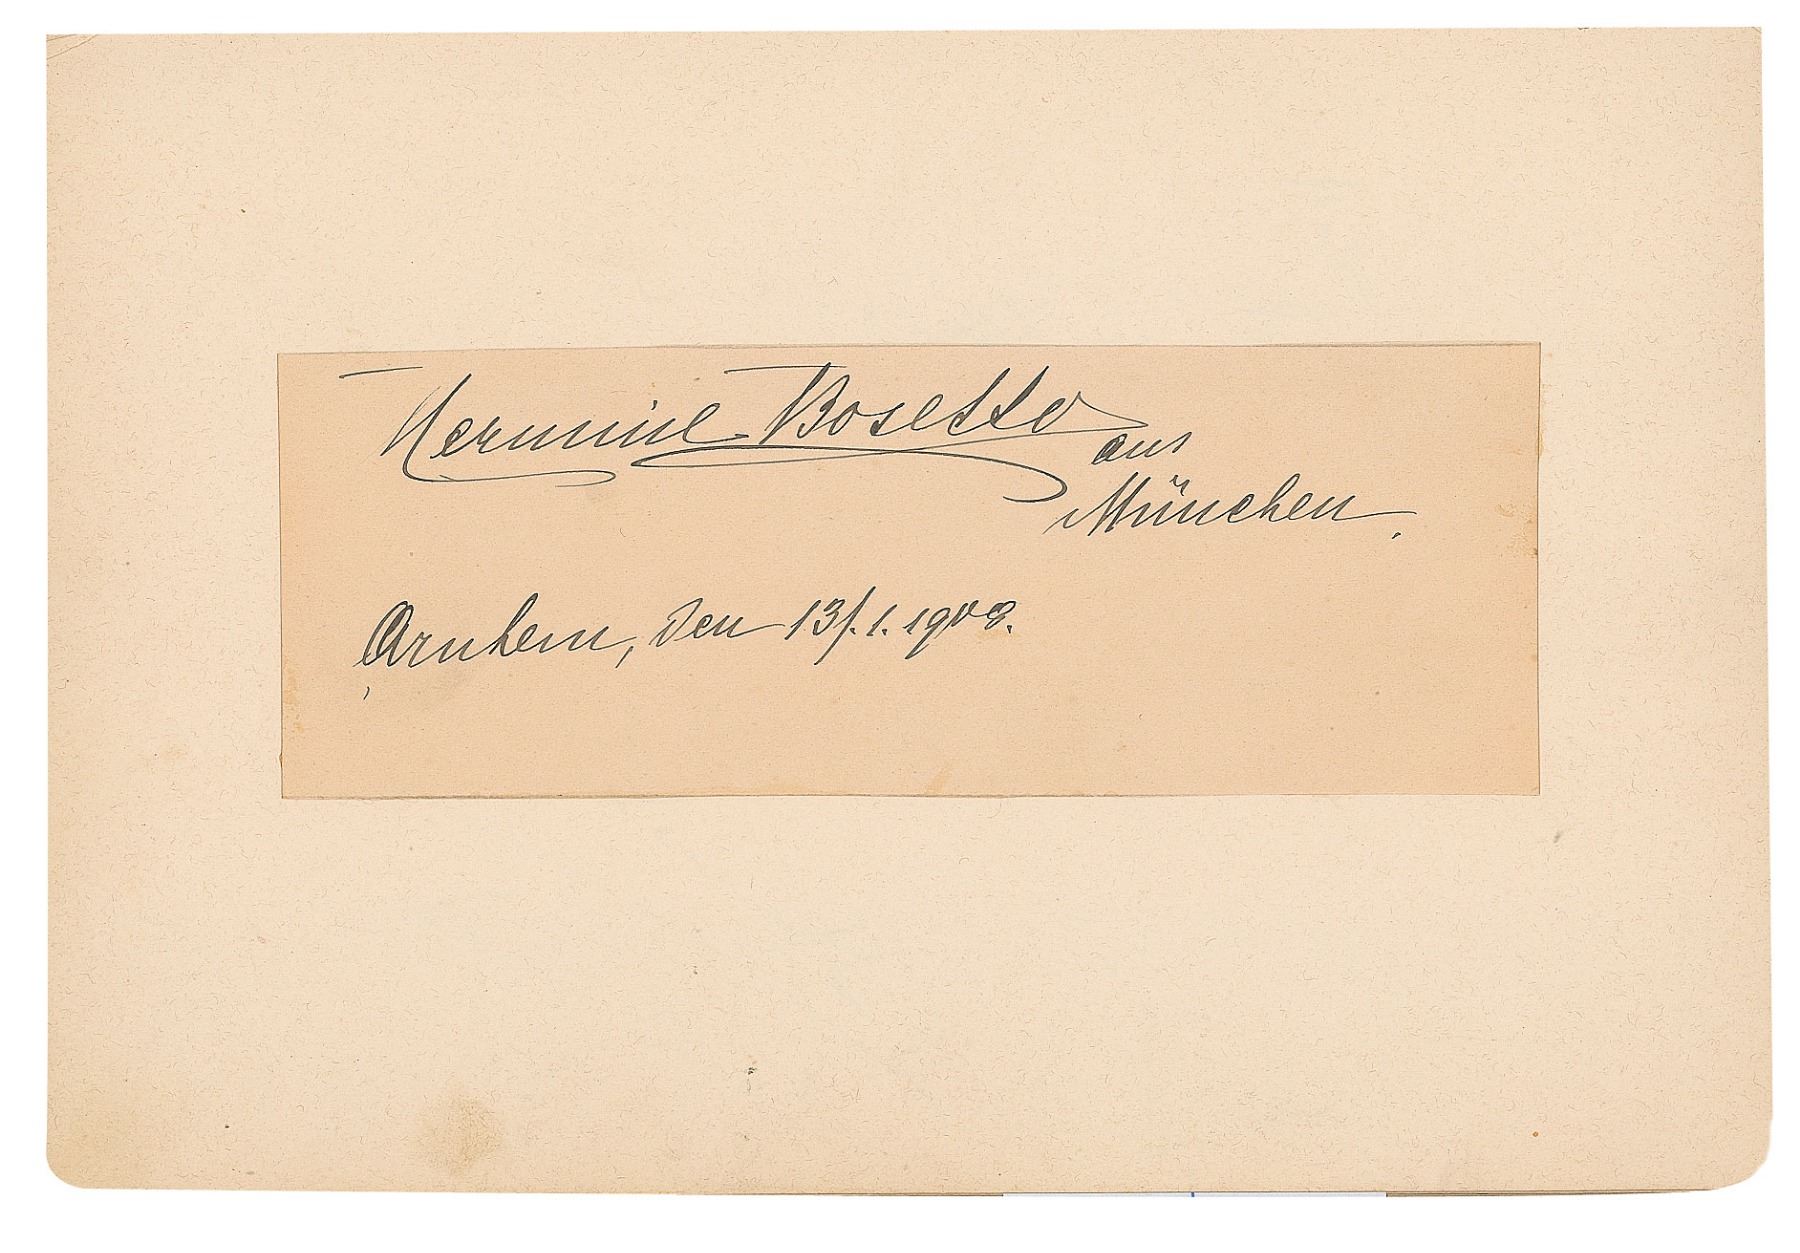 Hermine Bosetti
aus
München.
Arnhem, den 13/.1.1908.